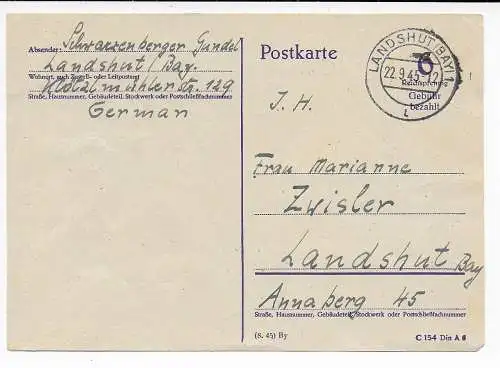 Absender: Schwarzenberger Gundel
Landshut / Bay.
Wohnort, auch Zustell- oder Leitpostamt
Str. 129
Straße, Hausnummer, Gebäudeteil, Stockwerk oder Postschließfachnummer
German
Postkarte
LANDSHUT (BAY) 1
22.9.45
6
Reichspfennig
Gebühr
bezahlt
J. H.
Frau Marianne
Zwisler
Landshut Bay
Annaberg 45
Straße, Hausnummer, Gebäudeteil, Stockwerk oder Postschließfachnummer
(8. 45) By
C 154 Din A 6